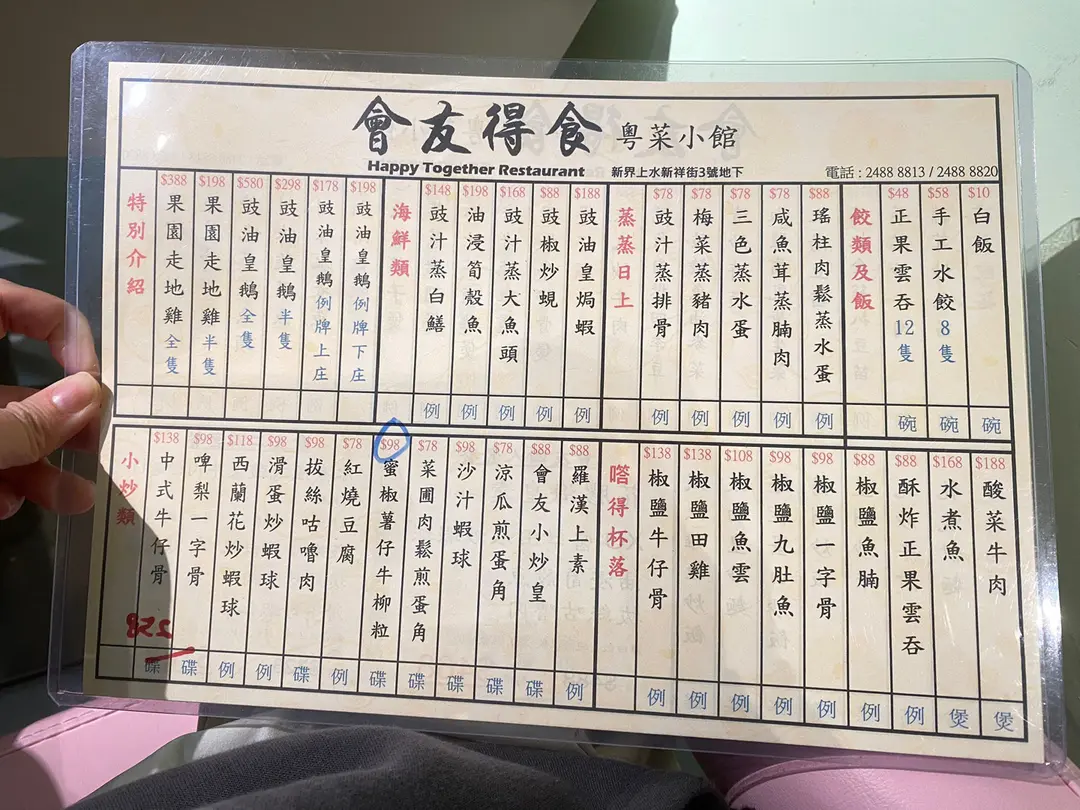 會友得食 粵菜小館
Happy Together Restaurant 新界上水新祥街3號地下 電話 : 2488 8813 / 2488 8820
特別介紹
$388 果園走地雞全隻
$198 果園走地雞半隻
$580 豉油皇鵝全隻
$298 豉油皇鵝半隻
$178 豉油皇鵝例牌上庄
$198 豉油皇鵝例牌下庄
海鮮類
$148 豉汁蒸白鱔 例
$198 油浸筍殼魚 例
$168 豉汁蒸大魚頭 例
$88 豉椒炒蜆 例
$188 豉油皇焗蝦 例
蒸蒸日上
$78 豉汁蒸排骨 例
$78 梅菜蒸豬肉 例
$78 三色蒸水蛋 例
$78 咸魚茸蒸腩肉 例
$88 瑤柱肉鬆蒸水蛋 例
餃類及飯
$48 正果雲吞12隻 碗
$58 手工水餃8隻 碗
$10 白飯 碗
小炒類
$138 中式牛仔骨 碟
$98 啤梨一字骨 碟
$118 西蘭花炒蝦球 例
$98 滑蛋炒蝦球 例
$98 拔絲咕嚕肉 碟
$78 紅燒豆腐 例
$98 蜜椒薯仔牛柳粒 碟
$78 菜圃肉鬆煎蛋角 碟
$98 沙汁蝦球 碟
$78 涼瓜煎蛋角 碟
$88 會友小炒皇 碟
$88 羅漢上素 例
嗒得杯落
$138 椒鹽牛仔骨 例
$138 椒鹽田雞 例
$108 椒鹽魚雲 例
$98 椒鹽九肚魚 例
$98 椒鹽一字骨 例
$88 椒鹽魚腩 例
$88 酥炸正果雲吞 例
$168 水煮魚 煲
$188 酸菜牛肉 煲